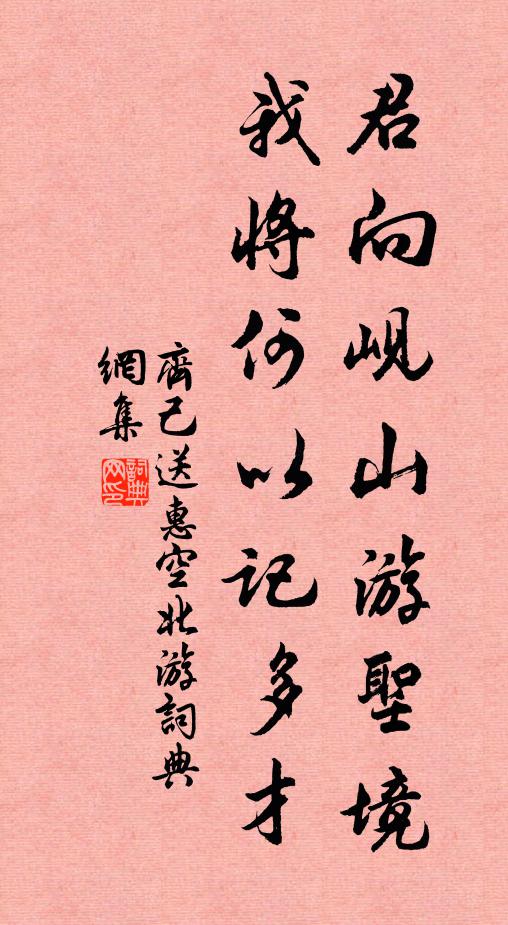 君向峴山游聖境
我將何以記多才
齊己送惠空北游詞典
網集
詞典网印